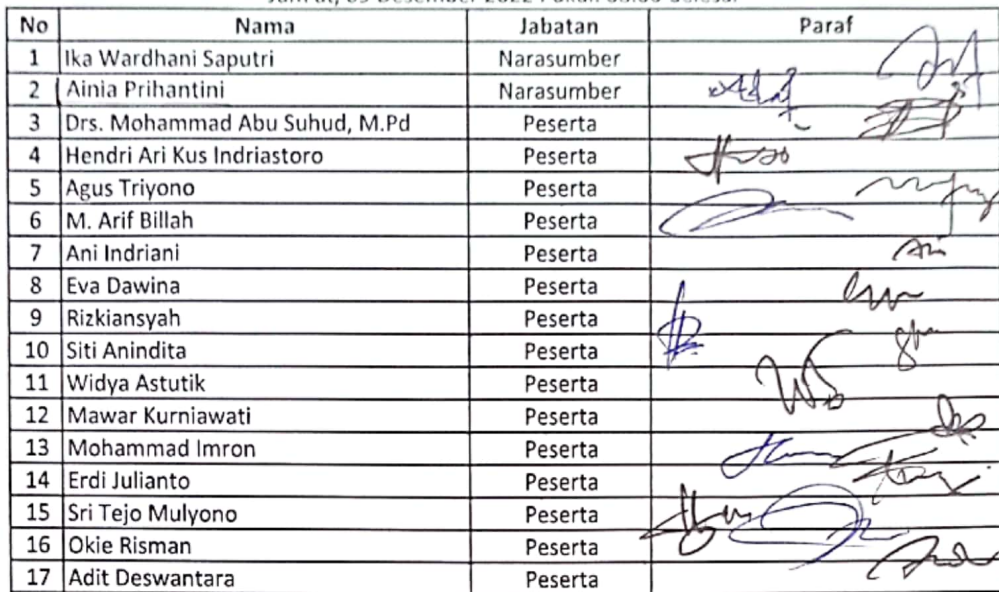 No Nama Jabatan Paraf
1 Ika Wardhani Saputri Narasumber
2 Ainia Prihantini Narasumber
3 Drs. Mohammad Abu Suhud, M.Pd Peserta
4 Hendri Ari Kus Indriastoro Peserta
5 Agus Triyono Peserta
6 M. Arif Billah Peserta
7 Ani Indriani Peserta
8 Eva Dawina Peserta
9 Rizkiansyah Peserta
10 Siti Anindita Peserta
11 Widya Astutik Peserta
12 Mawar Kurniawati Peserta
13 Mohammad Imron Peserta
14 Erdi Julianto Peserta
15 Sri Tejo Mulyono Peserta
16 Okie Risman Peserta
17 Adit Deswantara Peserta